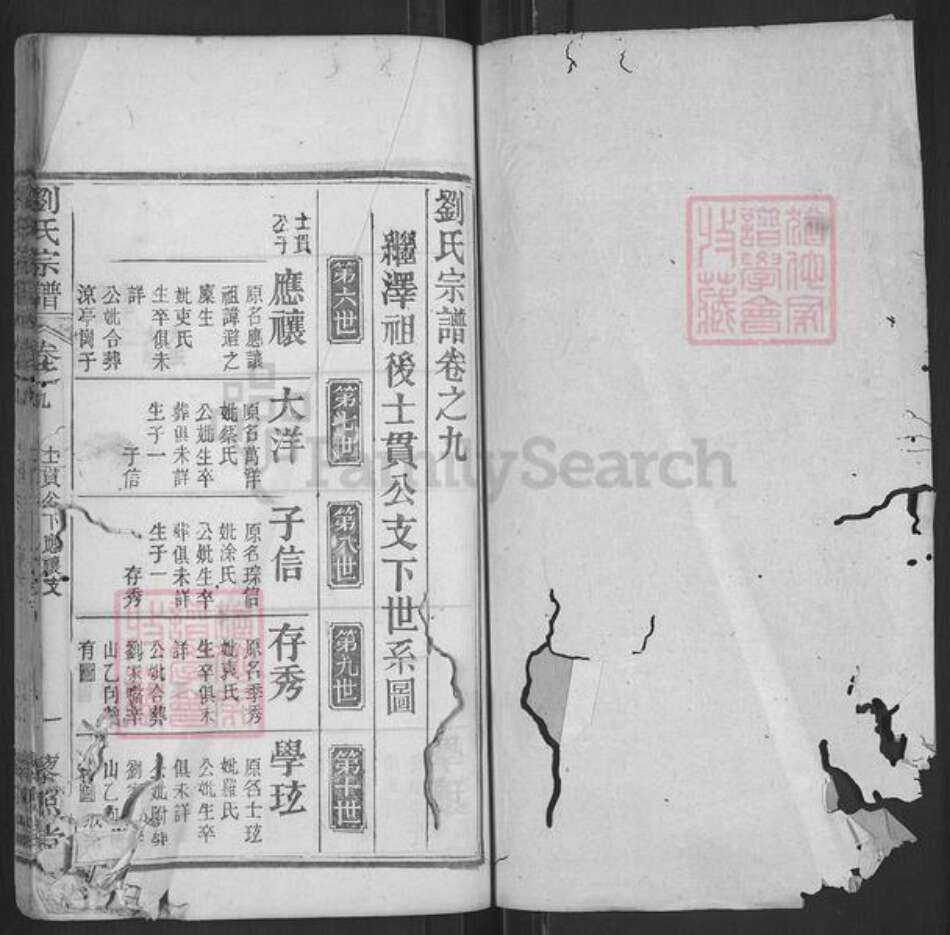 劉氏宗譜卷之九
繼澤祖後士貫公支下世系圖
第六世
第七世
第八世
第九世
第十世
士貫
公子
應禳
原名應讓
祖諱避之
廩生
妣吏氏
生卒俱未
詳
公妣合葬
涼亭崗子
大洋
原名萬洋
妣蔡氏
公妣生卒
葬俱未詳
生子一
子信
子信
原名琮信
妣涂氏
公妣生卒
葬俱未詳
生子一
存秀
存秀
原名季秀
妣袁氏
生卒俱未
詳
公妣合葬
山乙向
有圖
學玹
原名士玹
妣羅氏
公妣生卒
俱未詳
公妣附葬
山乙向
劉氏宗譜
卷九
士貫公下應禳支
一
藜照堂
譜學會
收藏
FamilySearch